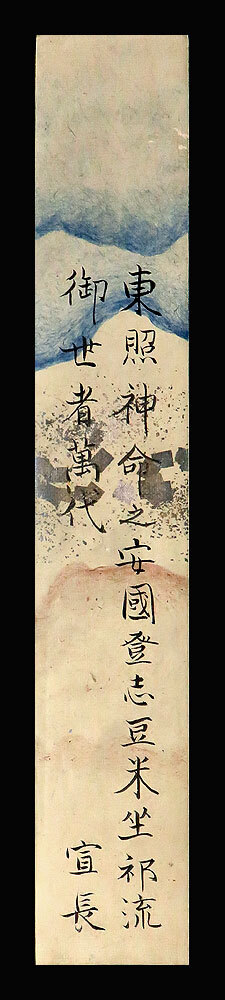 東照神命之安國登志豆米坐祁流
御世者萬代
宣長